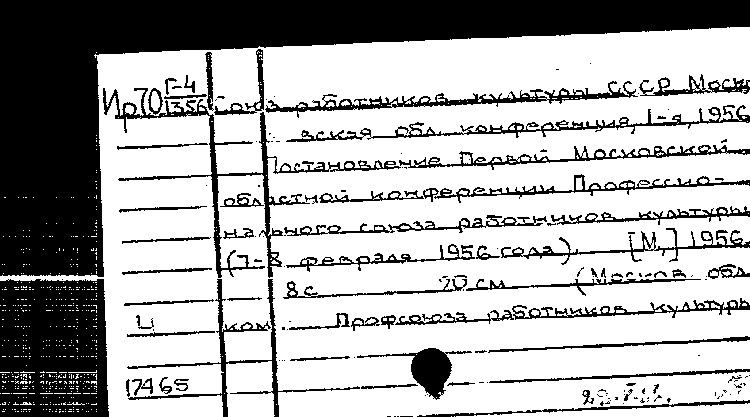 Ир70 Г-4
1356 Союз работников культуры СССР Моск
вская обл. конференция, 1-я, 1956
Постановление Первой Московской
областной конференции Профессио-
нального союза работников культуры
(7-8 февраля 1956 года). [М.,] 1956.
8 с 20 см (Москов обл
ц ком. Профсоюза работников культуры
17465